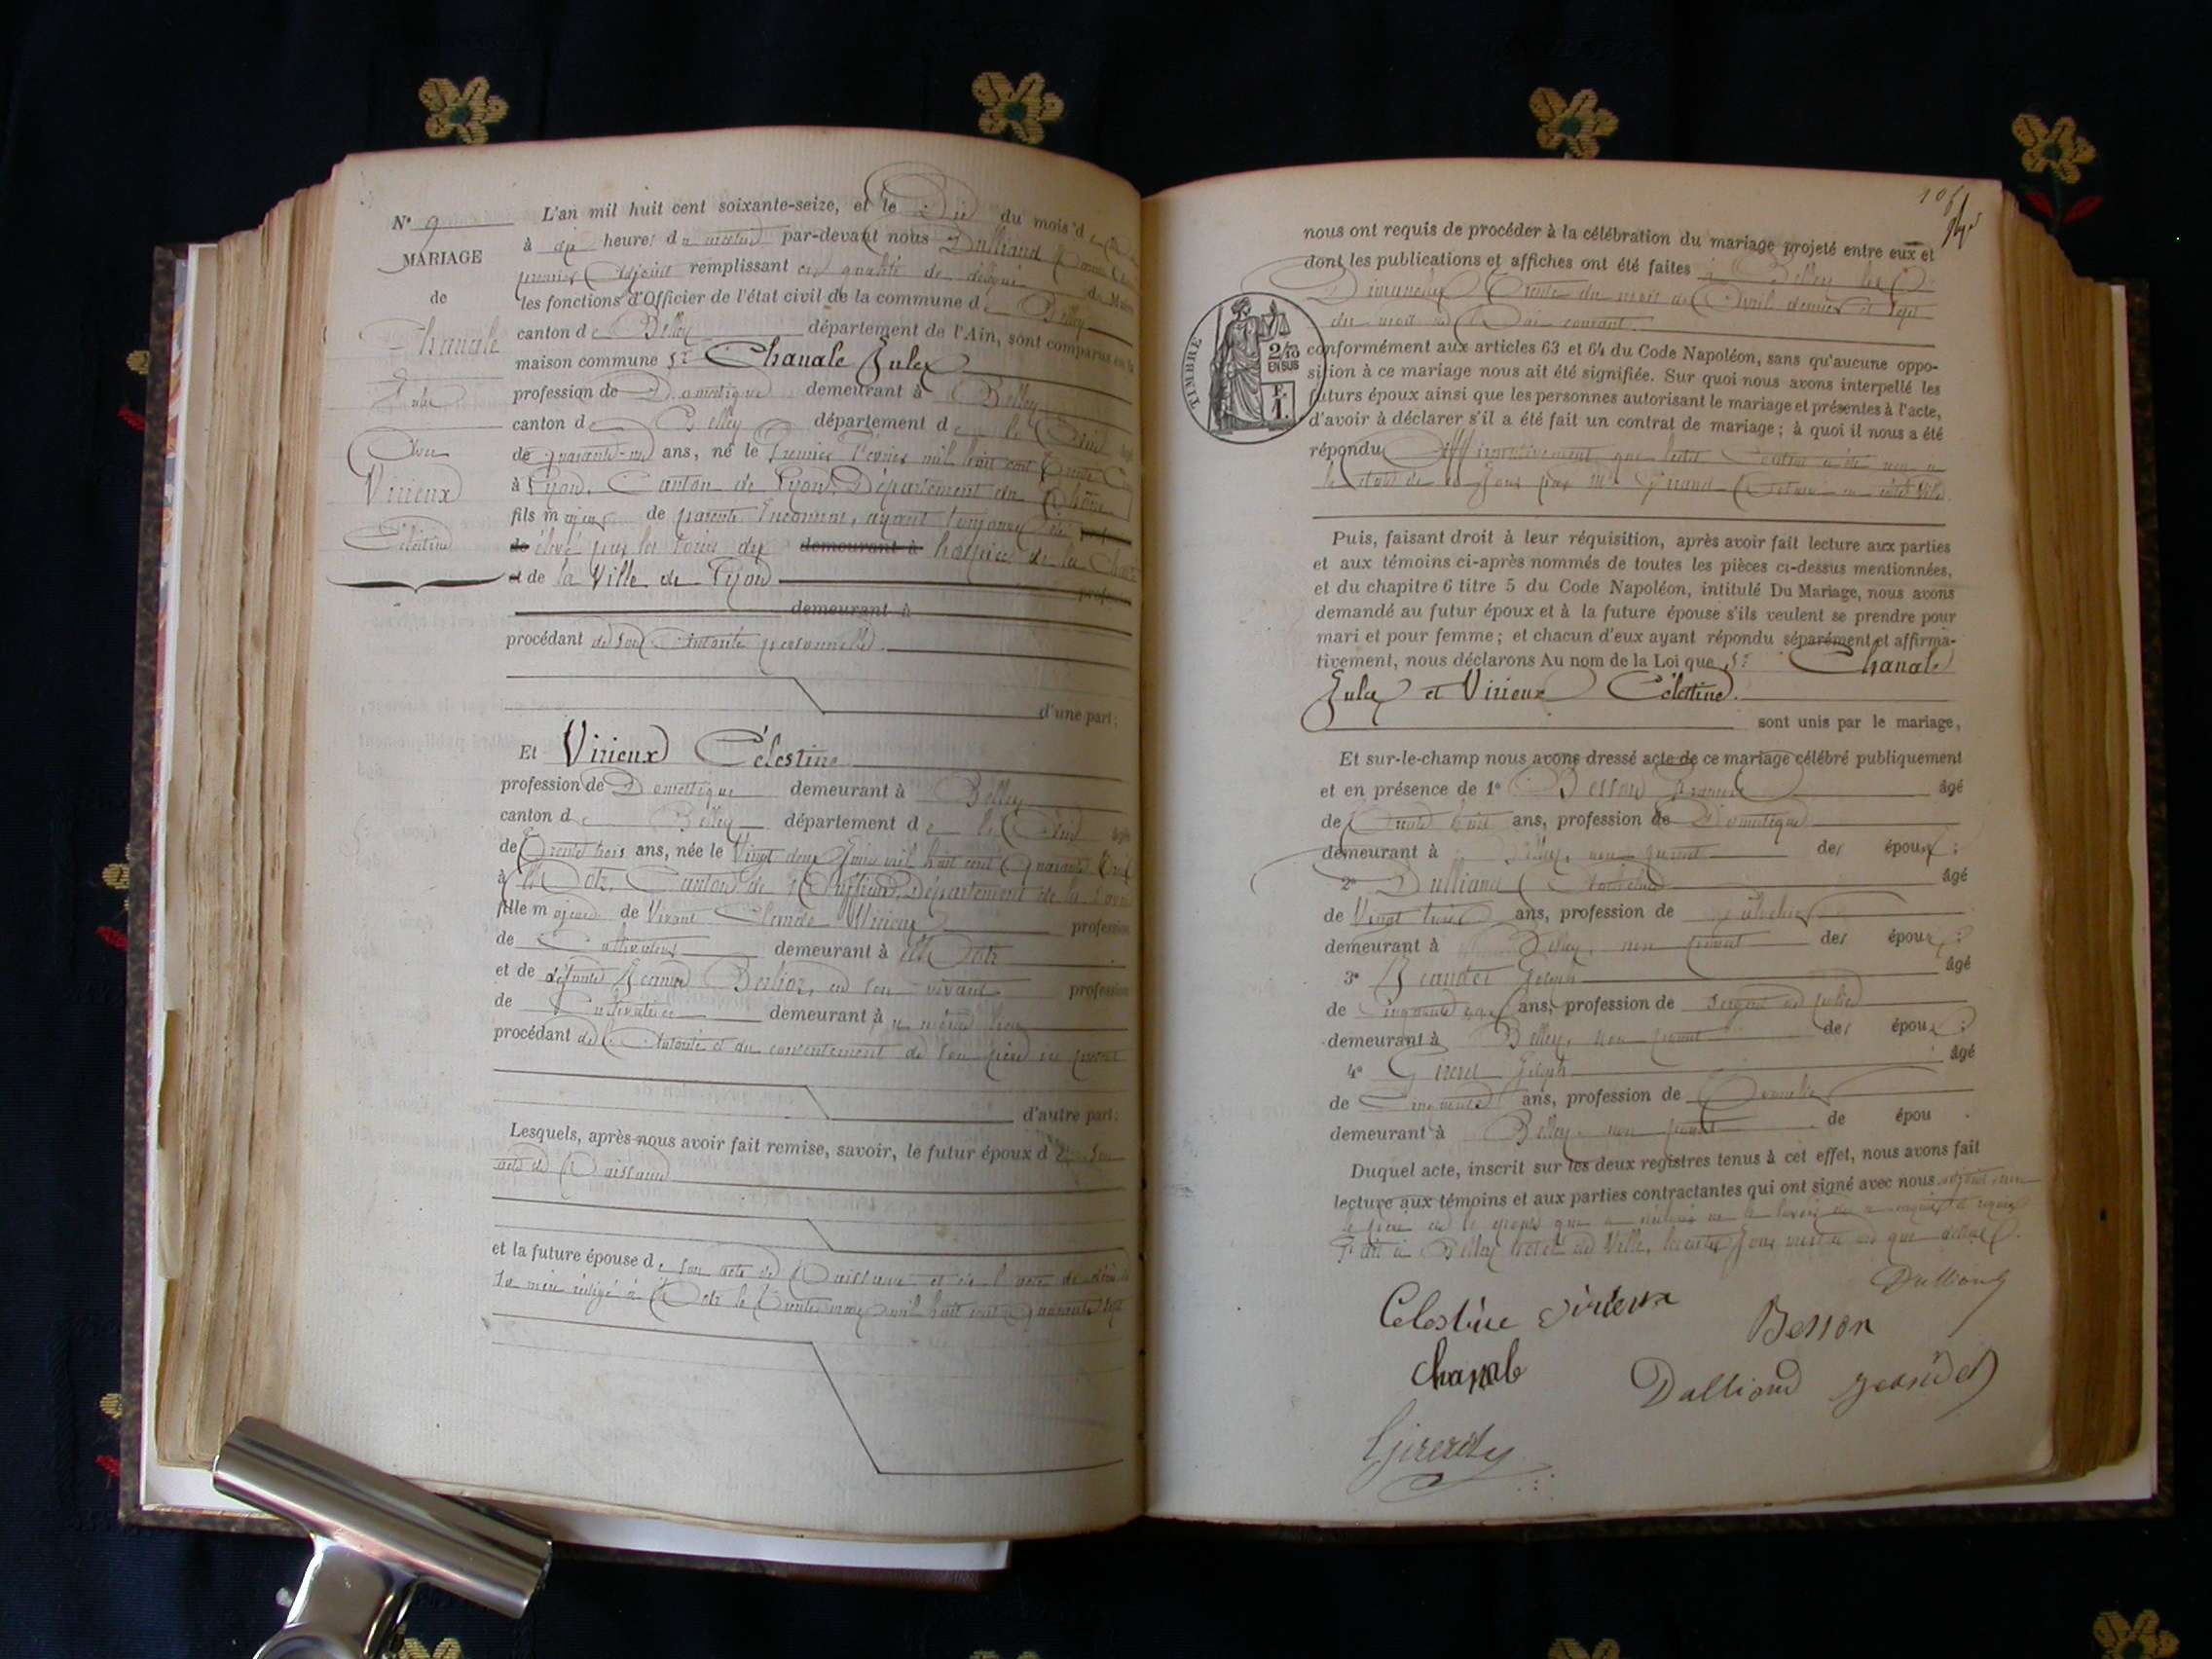 N° 9
MARIAGE
de
Chanale
Jules
Avec
Virieux
Célestine
L'an mil huit cent soixante-seize, et le Dix du mois d
à dix heures du matin par-devant nous Dulliand
premier Adjoint remplissant en qualité de délégué du Maire
les fonctions d'Officier de l'état civil de la commune de Belley
canton de Belley département de l'Ain, sont comparus en la
maison commune Sr Chanale Jules
profession de Domestique demeurant à Belley
canton de Belley département de l'Ain
de quarante-un ans, né le Premier Février mil huit cent Trente Cinq
à Lyon, Canton de Lyon, Département du Rhône
fils majeur de parents Inconnus, ayant toujours été prof.
de élevé par les soins des demeurant à hospices de la Charité
et de la Ville de Lyon
prof.
demeurant à
procédant de son Autorité personnelle.
d'une part;
Et Virieux Célestine
profession de Domestique demeurant à Belley
canton de Belley département de l'Ain âgée
de Trente trois ans, née le Vingt deux Juin mil huit cent Quarante Deux
à Motz, Canton de Ruffieux, Département de la Savoie
fille majeure de Vivant Claude Virieux profession
de Cultivateur demeurant à Motz
et de défunte Jeanne Berlioz, en son vivant profession
de Cultivatrice demeurant au même lieu
procédant de l'Autorité et du consentement de son père ici présent
d'autre part;
Lesquels, après nous avoir fait remise, savoir, le futur époux de son
acte de Naissance
et la future épouse de son acte de Naissance et de l'acte de décès de
sa mère rédigé à Motz le Trente mars mil huit cent Quarante sept
nous ont requis de procéder à la célébration du mariage projeté entre eux et
dont les publications et affiches ont été faites à Belley les
Dimanches Trente du mois d'Avril dernier et Sept
du mois de Mai courant.
TIMBRE
2/10
EN SUS
conformément aux articles 63 et 64 du Code Napoléon, sans qu'aucune oppo-
sition à ce mariage nous ait été signifiée. Sur quoi nous avons interpellé les
futurs époux ainsi que les personnes autorisant le mariage et présentes à l'acte,
d'avoir à déclarer s'il a été fait un contrat de mariage; à quoi il nous a été
répondu Affirmativement que ledit Contrat a été reçu
Notaire en cette Ville
Puis, faisant droit à leur réquisition, après avoir fait lecture aux parties
et aux témoins ci-après nommés de toutes les pièces ci-dessus mentionnées,
et du chapitre 6 titre 5 du Code Napoléon, intitulé Du Mariage, nous avons
demandé au futur époux et à la future épouse s'ils veulent se prendre pour
mari et pour femme; et chacun d'eux ayant répondu séparément et affirma-
tivement, nous déclarons Au nom de la Loi que Sr Chanale
Jules et Virieux Célestine.
sont unis par le mariage,
Et sur-le-champ nous avons dressé acte de ce mariage célébré publiquement
et en présence de 1° Besson âgé
de Trente huit ans, profession de Domestique
demeurant à Belley, non parent des époux;
2° Dulliand âgé
de Vingt trois ans, profession de
demeurant à Belley, non parent des époux;
3° Jeandet Joseph âgé
de Cinquante ans, profession de Sergent de police
demeurant à Belley, non parent des époux;
4° Joseph âgé
de Cinquante ans, profession de
demeurant à Belley, non parent de épou
Duquel acte, inscrit sur les deux registres tenus à cet effet, nous avons fait
lecture aux témoins et aux parties contractantes qui ont signé avec nous
le père de l'épouse qui a déclaré ne le savoir de ce enquis et requis
Fait à Belley hôtel de Ville, lesdits jour mois et an que dessus.
Dulliand
Celestine virieux
Besson
chanale
Dulliand